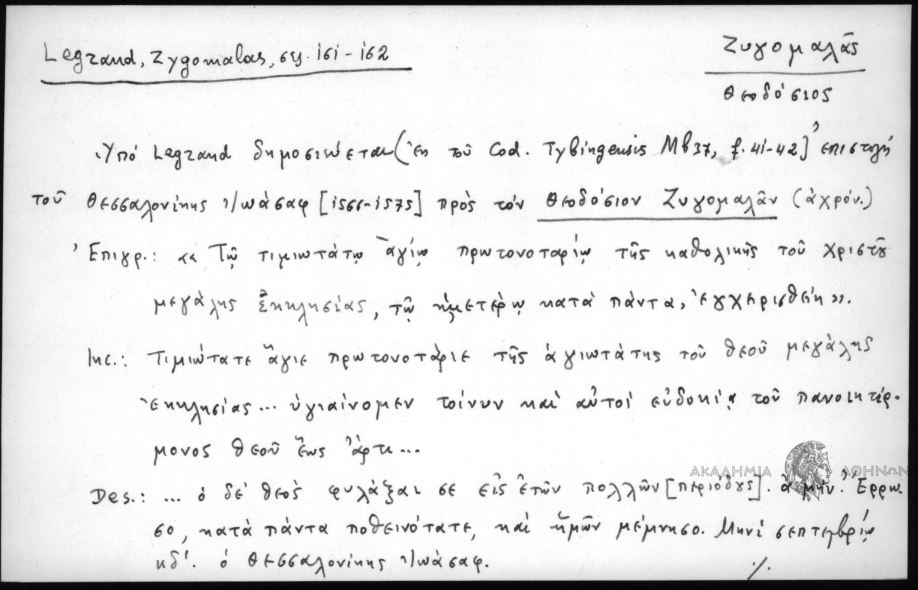 Legrand, Zygomalas, σελ. 161-162
Ζυγομαλᾶς
Θεοδόσιος
Ὑπό Legrand δημοσιεύεται (ἐκ τοῦ Cod. Tybingensis Mb 37, f. 41-42) ἐπιστολή
τοῦ Θεσσαλονίκης Ἰωάσαφ [1566-1575] πρὸς τόν Θεοδόσιον Ζυγομαλᾶν (ἀχρόν.)
Ἐπιγρ.: «Τῷ τιμιωτάτῳ ἁγίῳ πρωτονοταρίῳ τῆς καθολικῆς τοῦ Χριστοῦ
μεγάλης ἐκκλησίας, τῷ ἡμετέρῳ κατὰ πάντα, ἐγχειρισθείη».
Inc.: Τιμιώτατε ἅγιε πρωτονοτάριε τῆς ἁγιωτάτης τοῦ θεοῦ μεγάλης
ἐκκλησίας... ὑγιαίνομεν τοίνυν καὶ αὐτοί εὐδοκίᾳ τοῦ πανοικτίρ-
μονος θεοῦ ἕως ἄρτι...
ΑΚΑΔΗΜΙΑ ΑΘΗΝΩΝ
Des.: ... ὁ δέ θεὸς φυλάξαι σε εἰς ἐτῶν πολλῶν [περιόδους]. ἀμήν. Ἔρρω-
σο, κατὰ πάντα ποθεινότατε, καὶ ἡμῶν μέμνησο. Μηνί σεπτεμβρίῳ
κδʹ. ὁ Θεσσαλονίκης Ἰωάσαφ.
./.